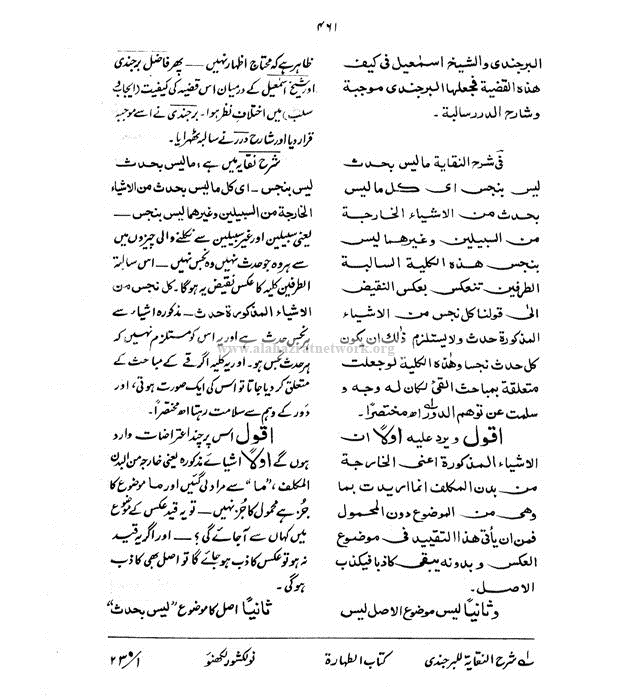 ۴۶۱
البرجندی والشیخ اسمٰعیل فی کیف
ھذہ القضیة فجعلھا البرجندی موجبة
وشارح الدرر سالبة۔
فی شرح النقایة مالیس بحدث
لیس بنجس ای کل مالیس
بحدث من الاشیاء الخارجة
من السبیلین وغیرھما لیس
بنجس ھذہ الکلیة السالبة
الطرفین تنعکس بعکس النقیض
الی قولنا کل نجس من الاشیاء
المذکورة حدث ولایستلزم ذلک ان یکون
کل حدث نجسا وھذہ الکلیة لوجعلت
متعلقة بمباحث القیئ لکان لہ وجہ و
سلمت عن توھم الدور اھ مختصرًا۔
اقول ویرد علیہ اولًا ان
الاشیاء المذکورة اعنی الخارجة
من بدن المکلف انما اریدت بما
وھی من الموضوع دون المحمول
فمن ان یأتی ھذا التقیید فی موضوع
العکس وبدونہ یبقی کاذبا فیکذب
الاصل۔
وثانیًا لیس موضوع الاصل لیس
ظاہر ہے کہ محتاج اظہار نہیں — پھر فاضل برجندی
اور شیخ اسمٰعیل کے درمیان اس قضیہ کی کیفیت (ایجاب و
سلب) میں اختلافِ نظر ہوا۔ برجندی نے اسے موجبہ
قرار دیا اور شارح درر نے سالبہ ٹھہرایا۔
شرح نقایہ میں ہے، مالیس بحدث
لیس بنجس۔ ای کل مالیس بحدث من الاشیاء
الخارجة من السبیلین وغیرھما لیس بنجس —
یعنی سبیلین اور غیر سبیلین سے نکلنے والی چیزوں میں
سے ہر وہ جو حدث نہیں وہ نجس نہیں — اس سالبة
الطرفین کلیہ کا عکس نقیض یہ ہوگا۔ کل نجس من
الاشیاء المذکورة حدث۔ مذکورہ اشیاء سے
ہر نجس حدث ہے اور یہ اس کو مستلزم نہیں کہ
ہر حدث نجس ہو۔ اور یہ کلیہ اگر قے کے مباحث کے
متعلق کر دیا جاتا تو اس کی ایک صورت ہوتی، اور
دَور کے وہم سے سلامت رہتا اھ مختصراً۔
اقول اس پر چند اعتراضات وارد
ہوں گے اولًا اشیائے مذکورہ یعنی خارجہ من البدن
المکلف، ”ما“ سے مراد لی گئیں اور ما موضوع کا
جُز ہے محمول کا جُز نہیں — تو یہ قید عکس کے موضوع
میں کہاں سے آجائے گی؟ — اور اگر یہ قید
نہ ہو تو عکس کاذب ہوجائے گا تو اصل بھی کاذب
ہوگی۔
ثانیًا اصل کا موضوع ”لیس بحدث“
www.alahazratnetwork.org
لہ شرح النقایة للبرجندی کتاب الطہارة نولکشور لکھنؤ ۱/ ۲۳